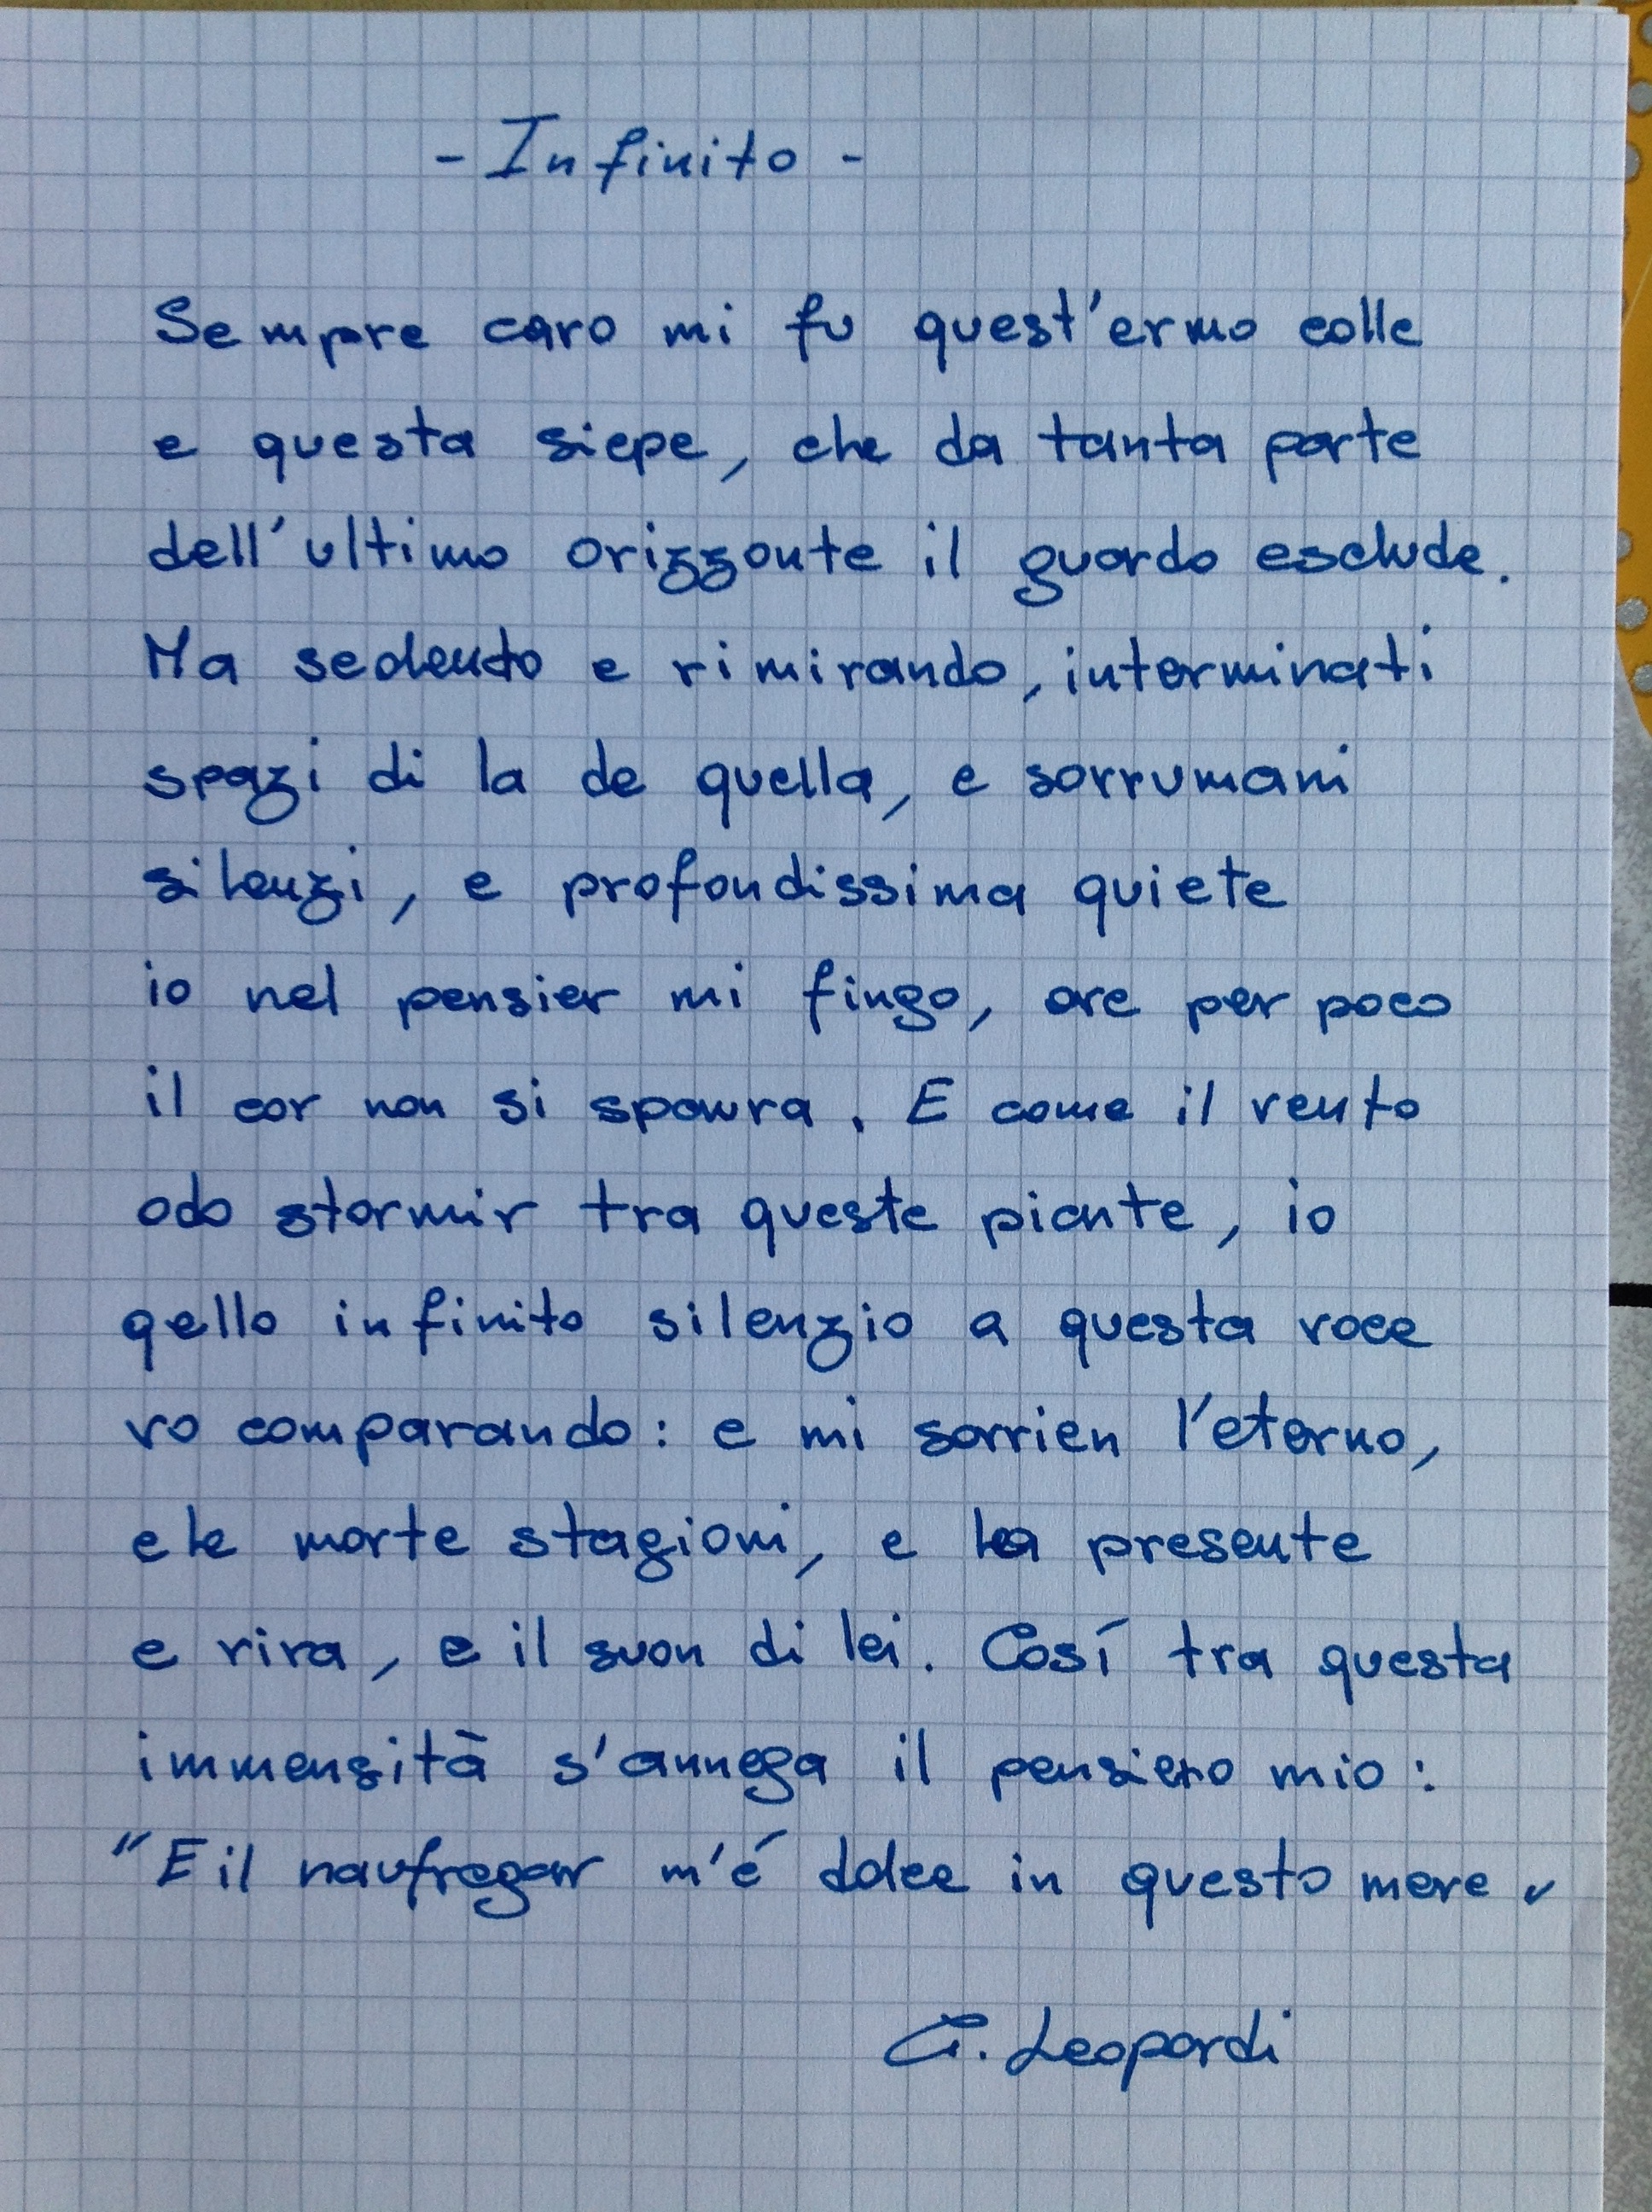 - Infinito -
Sempre caro mi fu quest'ermo colle
e questa siepe, che da tanta parte
dell'ultimo orizzonte il guardo esclude.
Ma sedendo e rimirando, interminati
spazi di la da quella, e sovrumani
silenzi, e profondissima quiete
io nel pensier mi fingo, ove per poco
il cor non si spaura. E come il vento
odo stormir tra queste piante, io
qello infinito silenzio a questa voce
vo comparando: e mi sovvien l'eterno,
e le morte stagioni, e la presente
e viva, e il suon di lei. Così tra questa
immensità s'annega il pensiero mio:
"E il naufragar m'é dolce in questo mare"
G. Leopardi